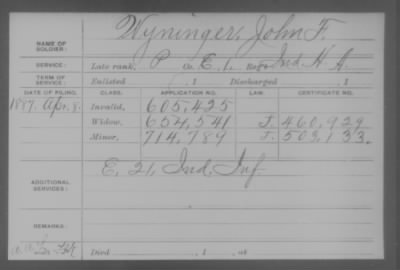 NAME OF SOLDIER: Wyninger, John F.
SERVICE: Late rank, P Co. E, 1, Reg't Ind. H. A.
TERM OF SERVICE: Enlisted , 1 Discharged , 1
DATE OF FILING. CLASS. APPLICATION NO. LAW. CERTIFICATE NO.
1887, Apr. 8. Invalid, 605,425
Widow, 654,541 J. 460,929
Minor, 714,789 J. 503,133.
ADDITIONAL SERVICES: E, 21, Ind. Inf
REMARKS:
Died , 1 , at